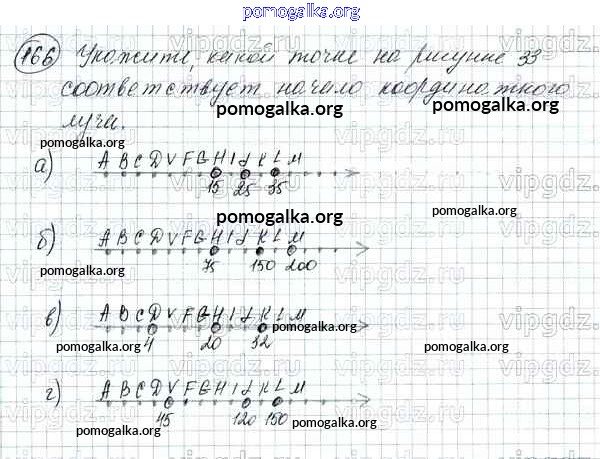 pomogalka.org
166 Укажите, какой точке на рисунке 33
соответствует начало координатного
pomogalka.org pomogalka.org
луча.
pomogalka.org
а) A B C D V F G H I J K L M
15 25 35
pomogalka.org
б) A B C D V F G H I J K L M
pomogalka.org
75 150 200
в) A B C D V F G H I J K L M
pomogalka.org
4 20 32
pomogalka.org pomogalka.org
г) A B C D V F G H I J K L M
45 120 150
pomogalka.org pomogalka.org